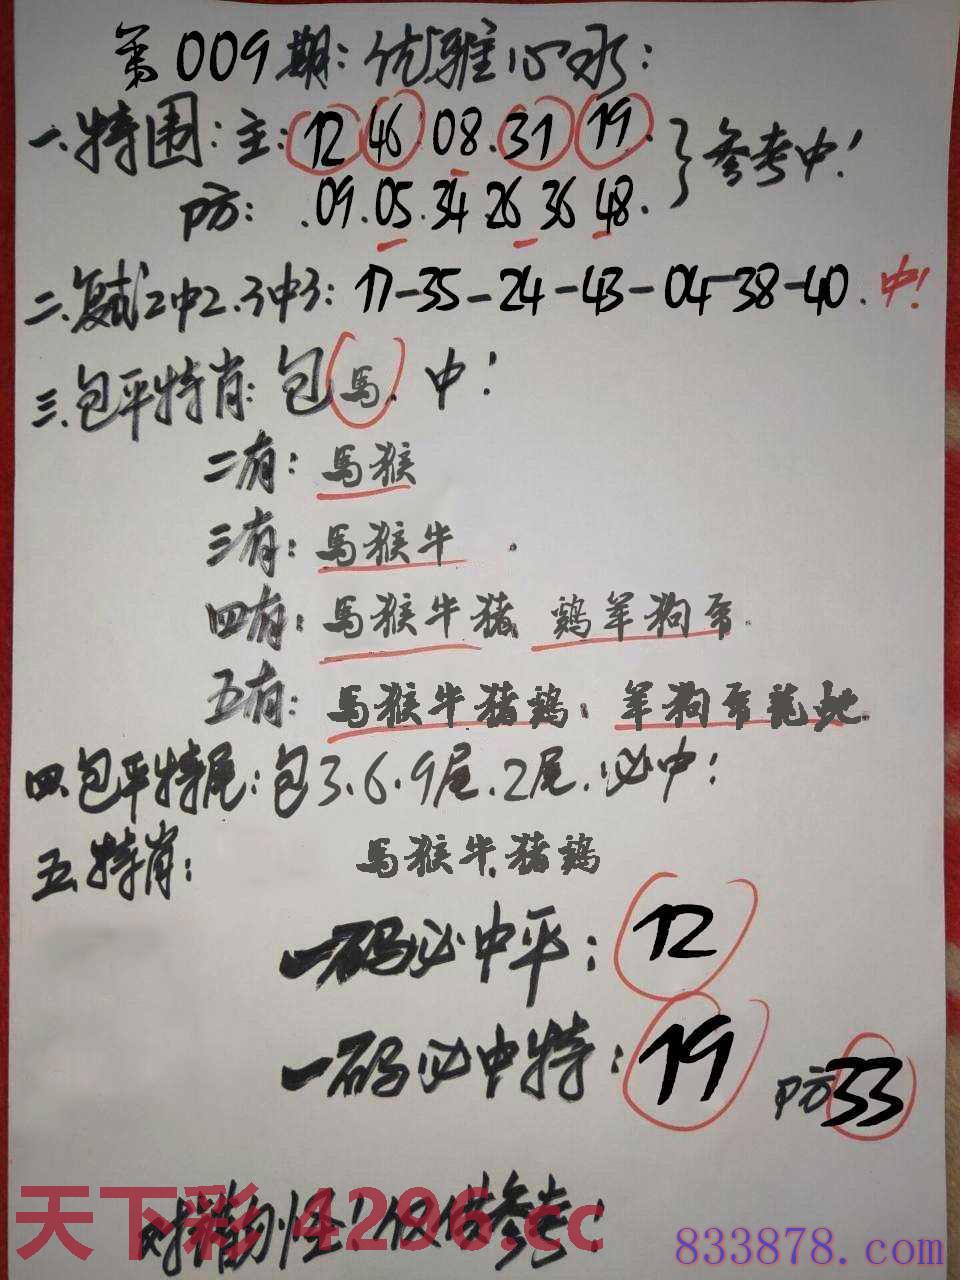 第009期:优雅心水:
一.特围:主:12 46 08.31 19. }参考中!
防:.09.05.34 26 36 48.
二.复式2中2.3中3:17-35-24-43-04-38-40.中!
三.包平特肖:包馬.中!
二有:馬猴
三有:馬猴牛.
四有:馬猴牛猪 鸡羊狗
五有:馬猴牛猪鸡 羊狗
四.包平特尾:包3.6.9尾.2尾.必中!
五.特肖: 馬猴牛.猪鸡
一码必中平:12
一码必中特:19 防33
仅供参考!
天下彩 4296.cc
833878.com